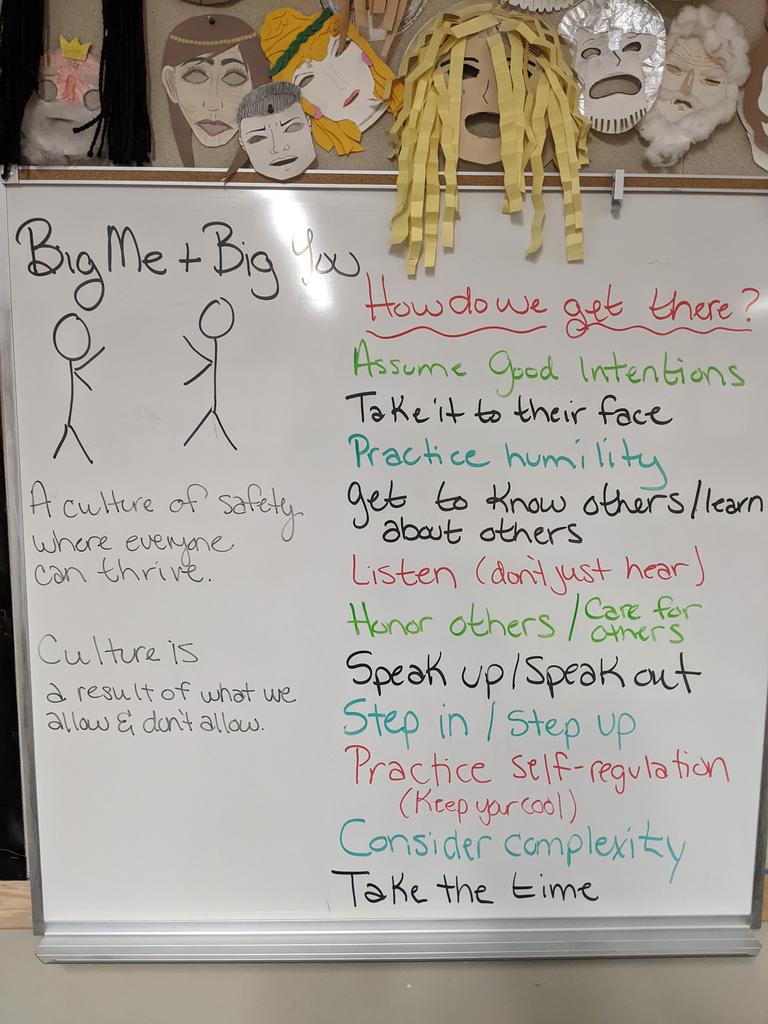 Big Me + Big You
A culture of safety
where everyone
can thrive.
Culture is
a result of what we
allow & don't allow.
How do we get there?
Assume Good Intentions
Take it to their face
Practice humility
get to know others/learn
about others
Listen (don't just hear)
Honor others / Care for
others
Speak up/Speak out
Step in / Step up
Practice self-regulation
(Keep your cool)
Consider complexity
Take the time